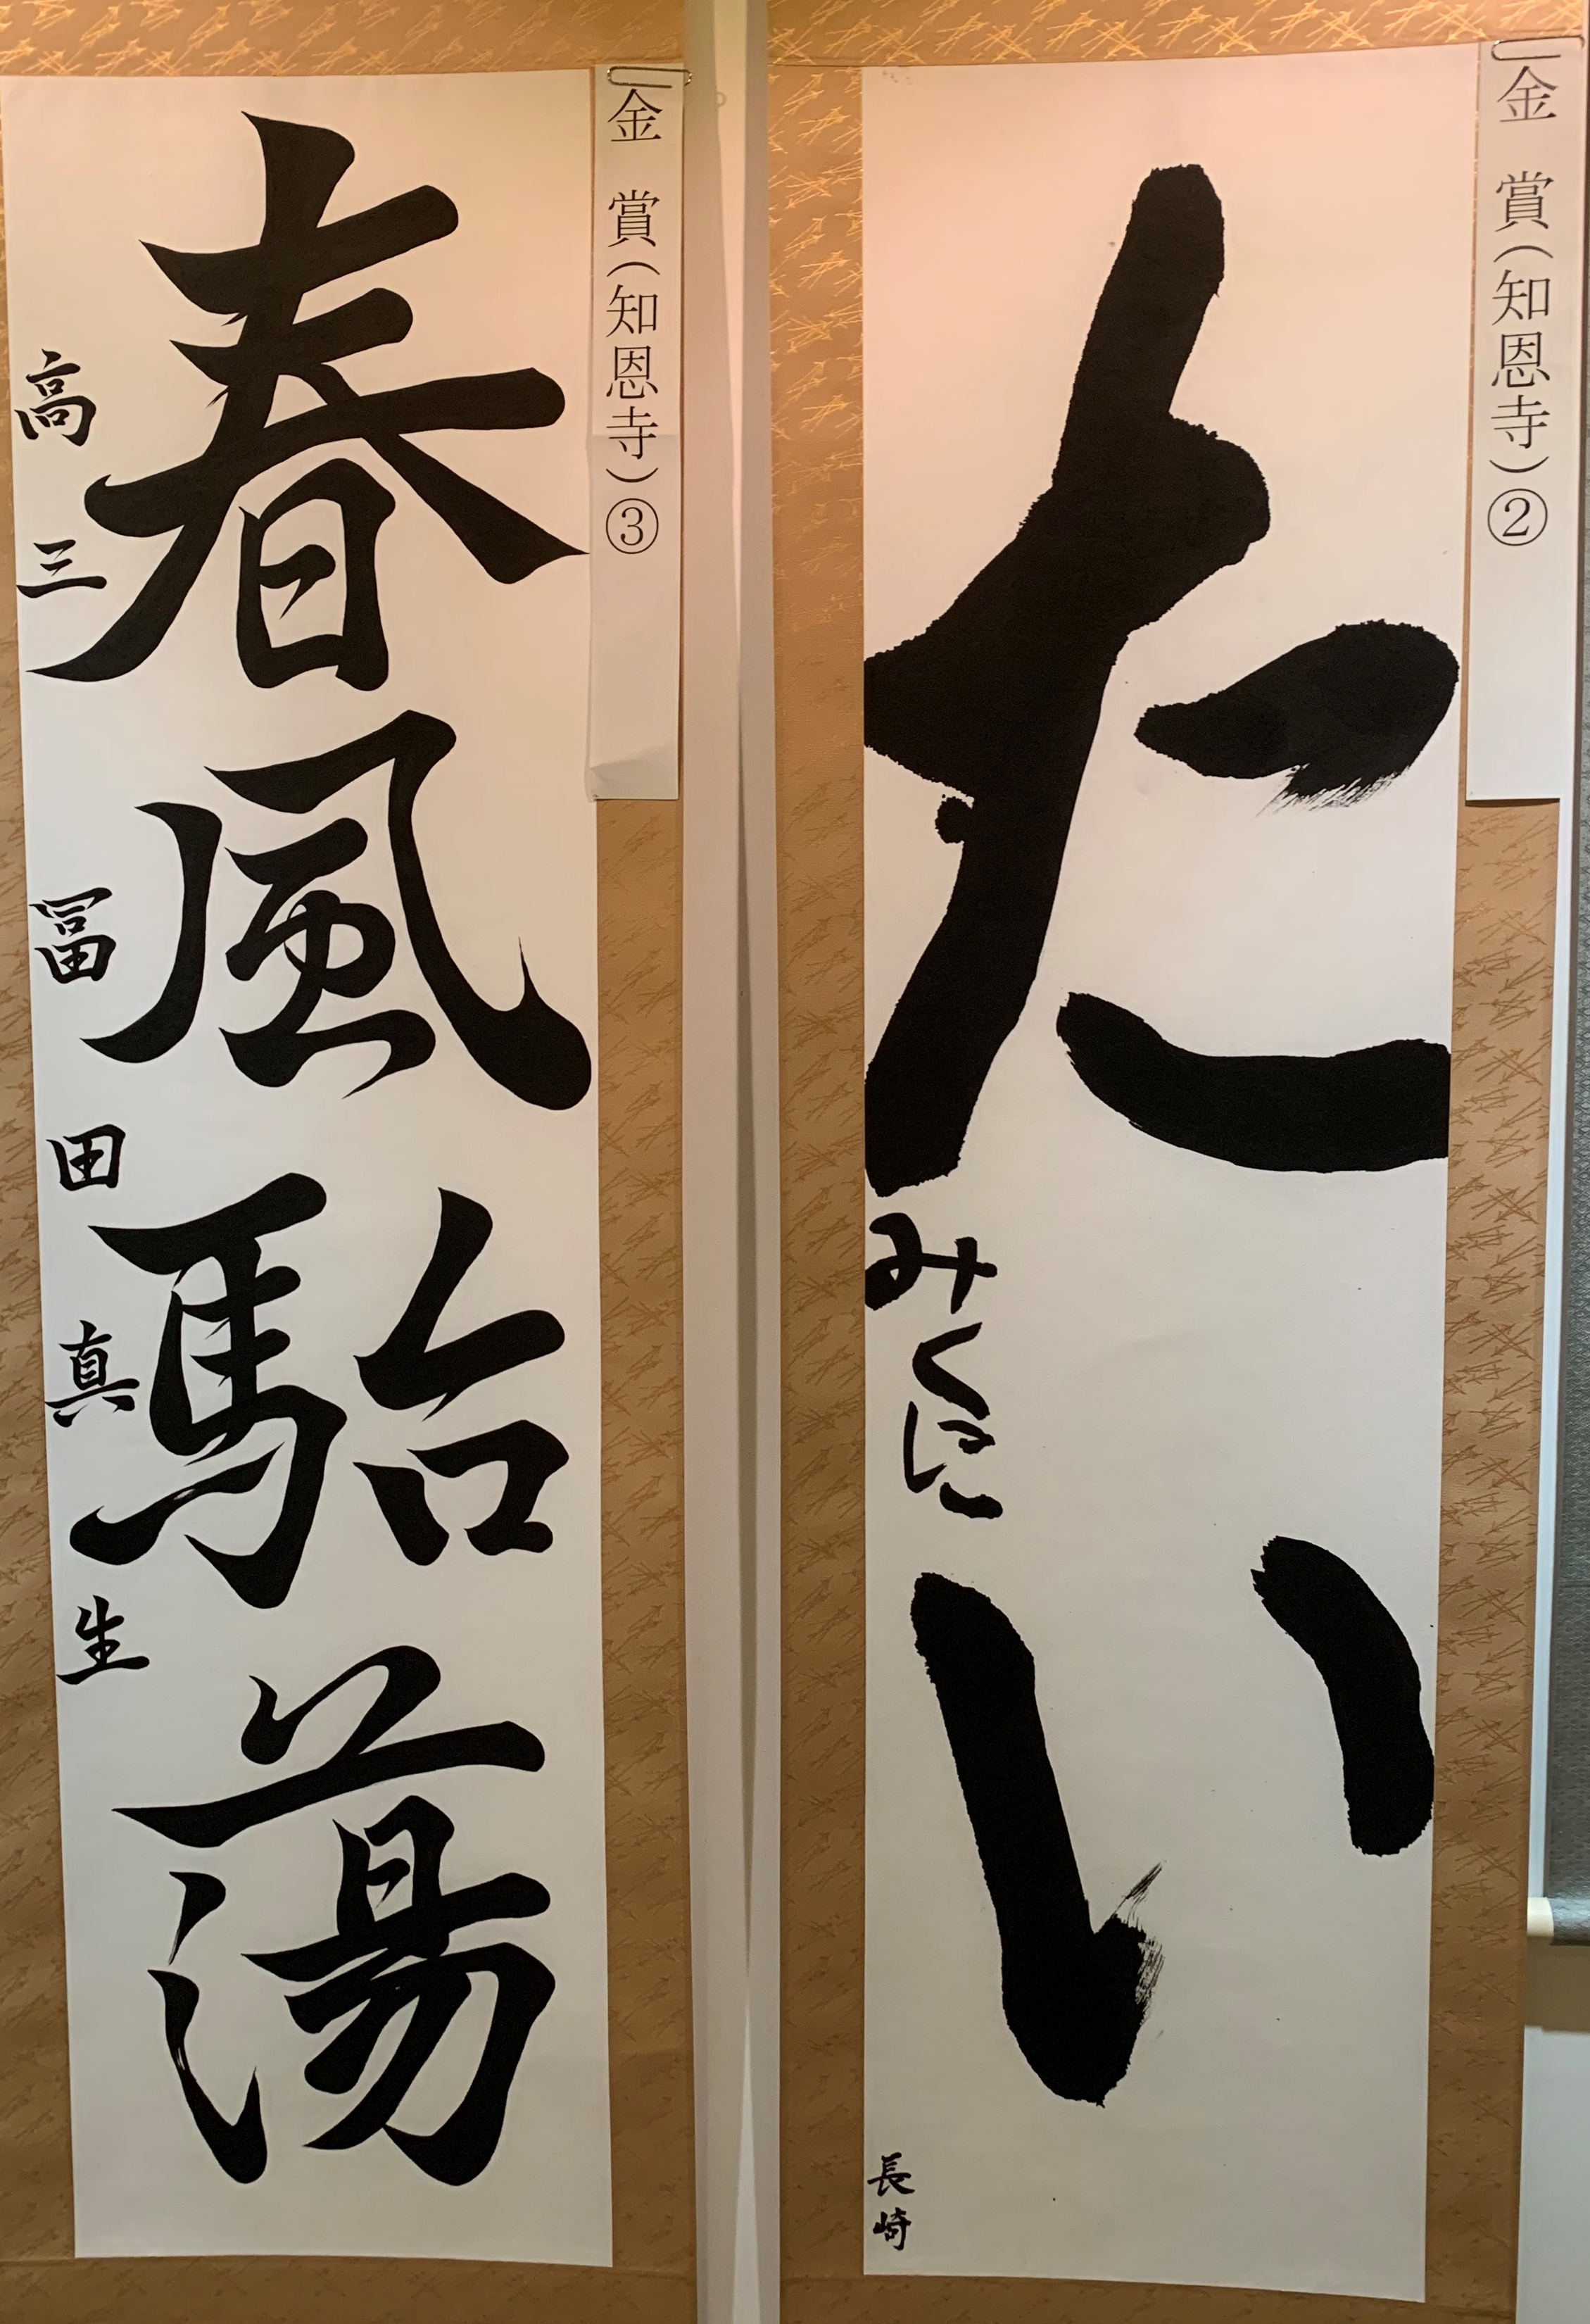 金賞(知恩寺)②
たい
みくに
長崎
金賞(知恩寺)③
春風駘蕩
高三 冨田真生